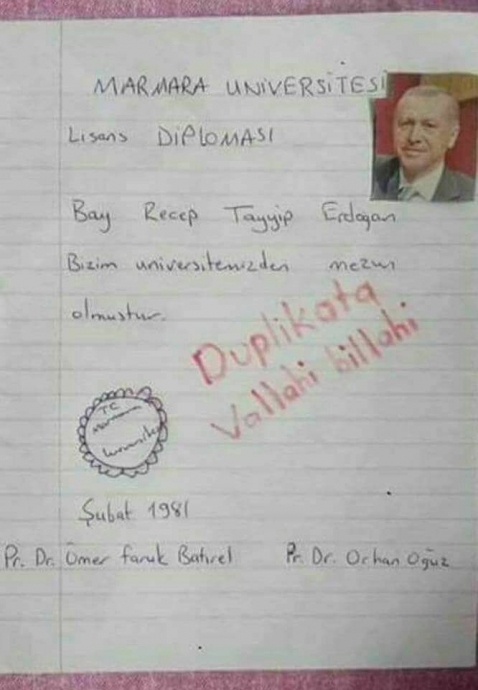 MARMARA UNİVERSİTESİ
Lisans DİPLOMASI
Bay Recep Tayyip Erdoğan
Bizim universitemizden mezun
olmuştur.
Duplikata
Vallahi billahi
TC
Marmara
Üniversitesi
Şubat 1981
Pr. Dr. Ömer faruk Batırel Pr. Dr. Orhan Oğuz